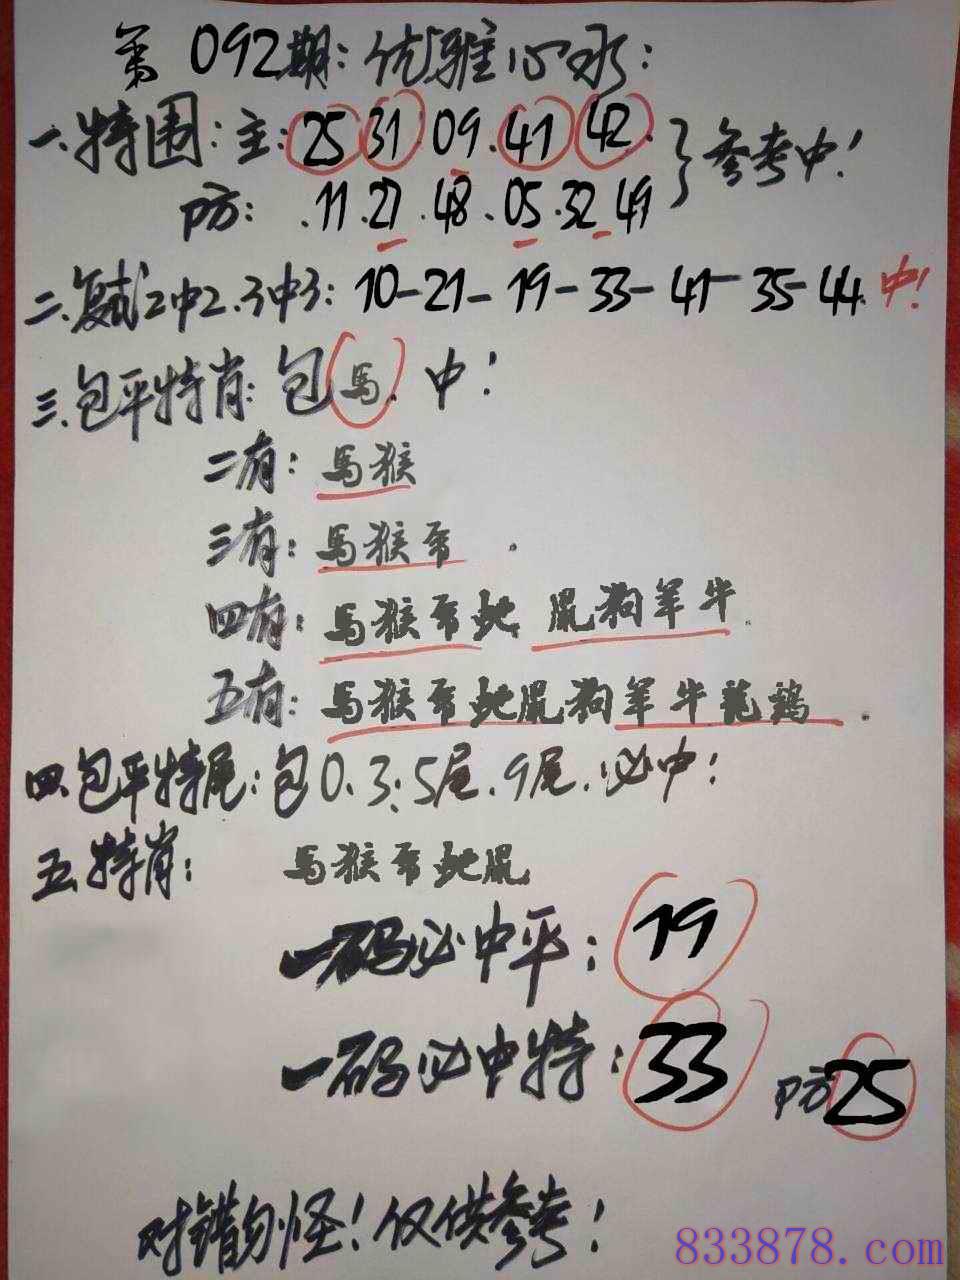 第092期:优雅心水:
一.特围:主:25 31 09.41 42.}参考中!
防: .11.27.48.05.32 49
二.复试2中2.3中3: 10-21-19-33-41-35-44.中!
三.包平特肖:包馬.中!
二有:馬猴
三有:馬猴.
四有:馬猴蛇 鼠狗羊牛.
五有:馬猴蛇鼠狗羊牛龍鷄.
四.包平特尾:包0.3:5尾.9尾.必中!
五.特肖: 馬猴蛇鼠
一码必中平:19
一码必中特:33 防25
对错勿怪!仅供参考!
833878.com